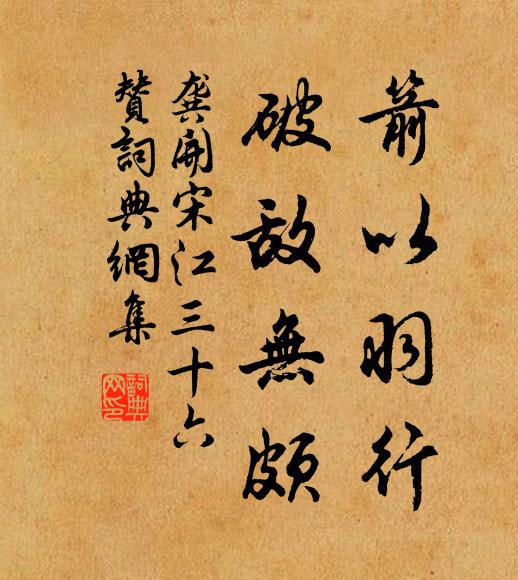 箭以羽行
破敌無頗
龚開宋江三十六
贊詞典網集
詞典網印